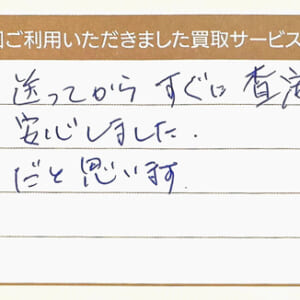 回ご利用いただきました買取サービス
送ってから すぐに 査定
安心しました.
だと思います.